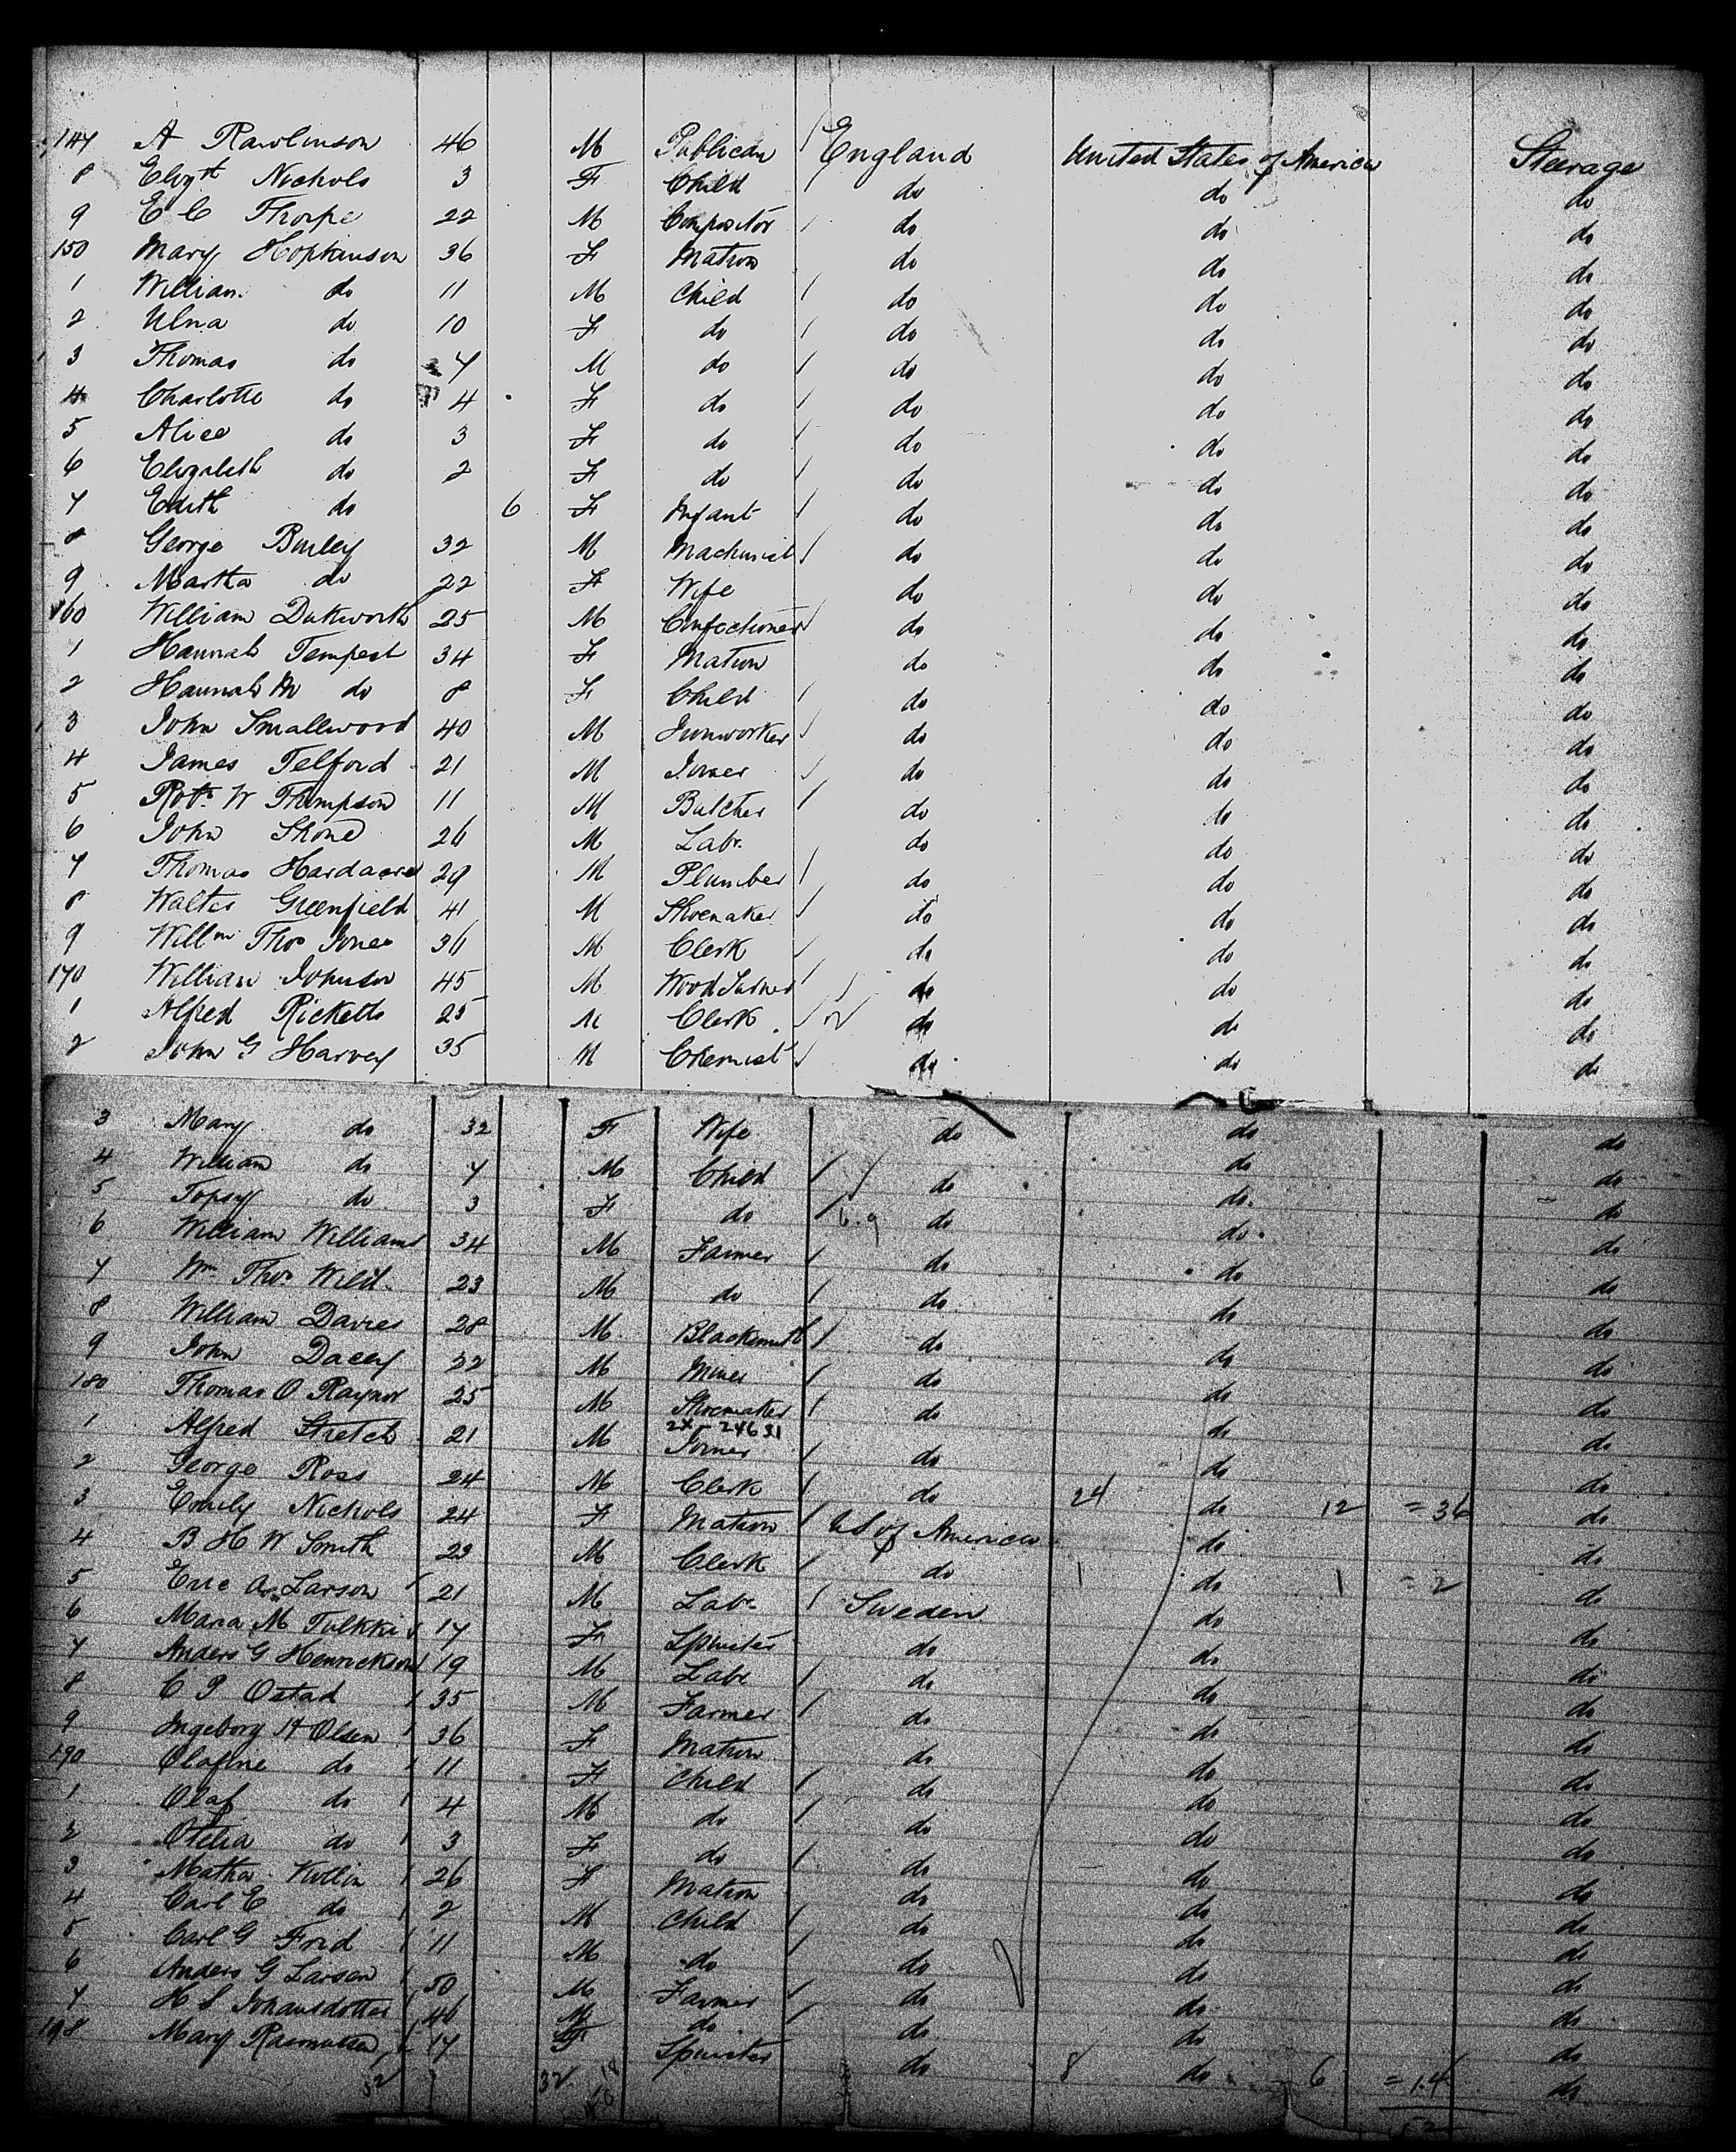 147 A Rawlinson 46 M Publican England United States of America Steerage
8 Elizth Nichols 3 F Child do do do
9 E C Thorpe 22 M Compositor do do do
150 Mary Hopkinson 36 F Matron do do do
1 William do 11 M Child do do do
2 do 10 F do do do do
3 Thomas do 7 M do do do do
4 Charlotte do 4 F do do do do
5 Alice do 3 F do do do do
6 Elizabeth do 2 F do do do do
7 Edith do 6 F Infant do do do
8 George Burley 32 M Machinist do do do
9 Martha do 22 F Wife do do do
160 William Duckworth 25 M Confectioner do do do
1 Hannah Tempest 34 F Matron do do do
2 Hannah M do 8 F Child do do do
3 John Smallwood 40 M Ironworker do do do
4 James Telford 21 M Joiner do do do
5 Robt W Thompson 11 M Butcher do do do
6 John Shone 26 M Labr do do do
7 Thomas Hardacre 29 M Plumber do do do
8 Walter Greenfield 41 M Shoemaker do do do
9 Willm Thos Jones 36 M Clerk do do do
170 William Johnson 45 M Wood Turner do do do
1 Alfred Ricketts 25 M Clerk do do do
2 John G Harvey 35 M Chemist do do do
3 Mary do 32 F Wife do do do
4 William do 7 M Child do do do
5 Topsy do 3 F do do do do
6 William Williams 34 M Farmer do do do
7 Wm Thos Wild 23 M do do do do
8 William Davies 28 M Blacksmith do do do
9 John Dacey 22 M Miner do do do
180 Thomas O Raynor 25 M Shoemaker do do do
1 Alfred Stretch 21 M Joiner do do do
2 George Ross 24 M Clerk do 24 do 12 = 36 do
3 Emily Nichols 24 F Matron US of America do do
4 B H W Smith 23 M Clerk do 1 do 1 = 2 do
5 Eric A Larson 21 M Labr Sweden do do
6 Maria M Tulkki 17 F Spinster do do do
7 Anders G Henrickson 19 M Labr do do do
8 C P Ostad 35 M Farmer do do do
9 Ingeborg H Olsen 36 F Matron do do do
190 Olafine do 11 F Child do do do
1 Olaf do 4 M do do do do
2 Otelia do 3 F do do do do
3 Matha 26 F Matron do do do
4 Carl E do 2 M Child do do do
5 Carl G Frid 11 M do do do do
6 Anders G Larsen 50 M Farmer do do do
7 H S Johansdotter 46 do do do do
198 Mary Rasmussen 17 F Spinster do 8 do 6 = 14 do
52 32 18 52